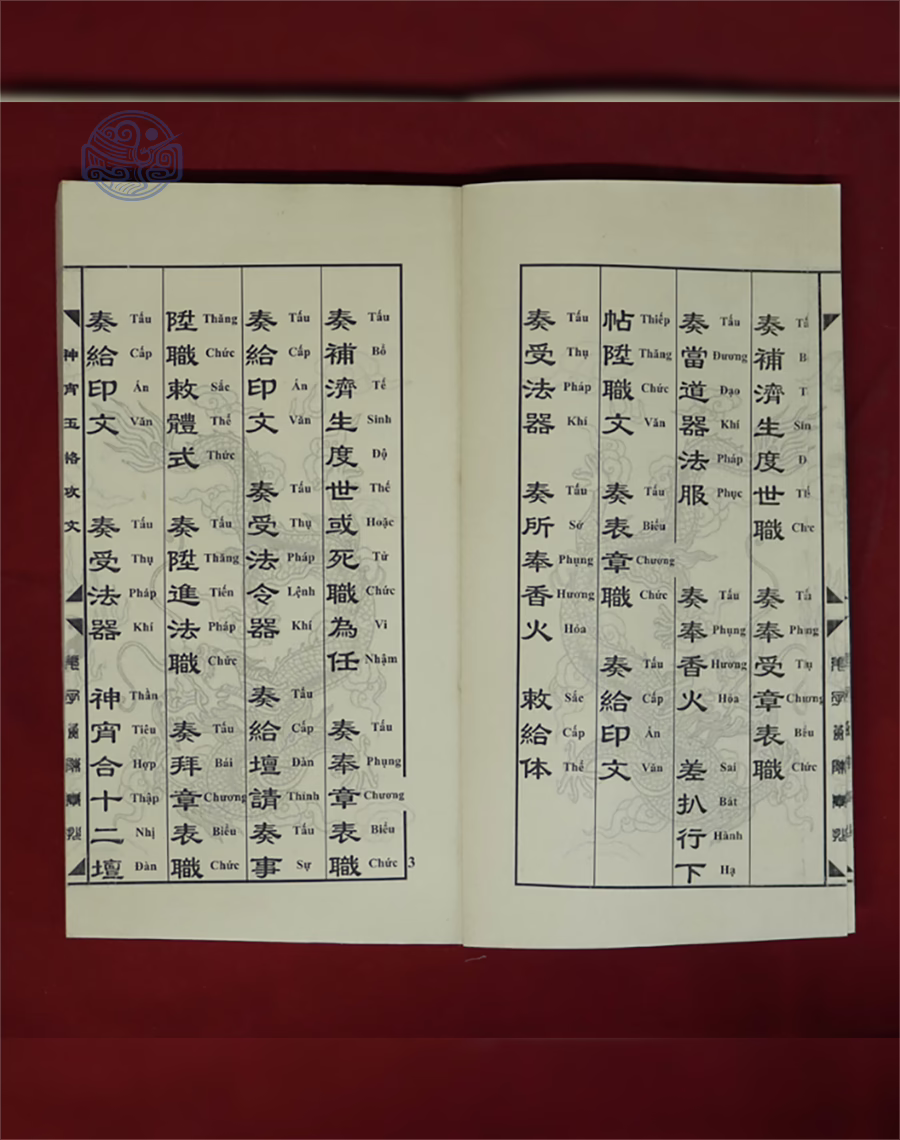 奏補濟生度世職 奏奉受章表職
奏當道器法服 奏奉香火 差扒行下
Tấu Đương Đạo Khí Pháp Phục Tấu Phụng Hương Hỏa Sai Bát Hành Hạ
帖陞職文 奏表章職 奏給印文
Thiếp Thăng Chức Văn Tấu Biểu Chương Chức Tấu Cấp Ấn Văn
奏受法器 奏所奉香火 敕給体
Tấu Thụ Pháp Khí Tấu Sở Phụng Hương Hỏa Sắc Cấp Thể
奏補濟生度世或死職為任 奏奉章表職
Tấu Bổ Tế Sinh Độ Thế Hoặc Tử Chức Vi Nhậm Tấu Phụng Chương Biểu Chức
奏給印文 奏受法令器 奏給壇請奏事
Tấu Cấp Ấn Văn Tấu Thụ Pháp Lệnh Khí Tấu Cấp Đàn Thỉnh Tấu Sự
陞職敕體式 奏陞進法職 奏拜章表職
Thăng Chức Sắc Thể Thức Tấu Thăng Tiến Pháp Chức Tấu Bái Chương Biểu Chức
奏給印文 奏受法器 神宵合十二壇
Tấu Cấp Ấn Văn Tấu Thụ Pháp Khí Thần Tiêu Hợp Thập Nhị Đàn
神宵玉格攻文
3